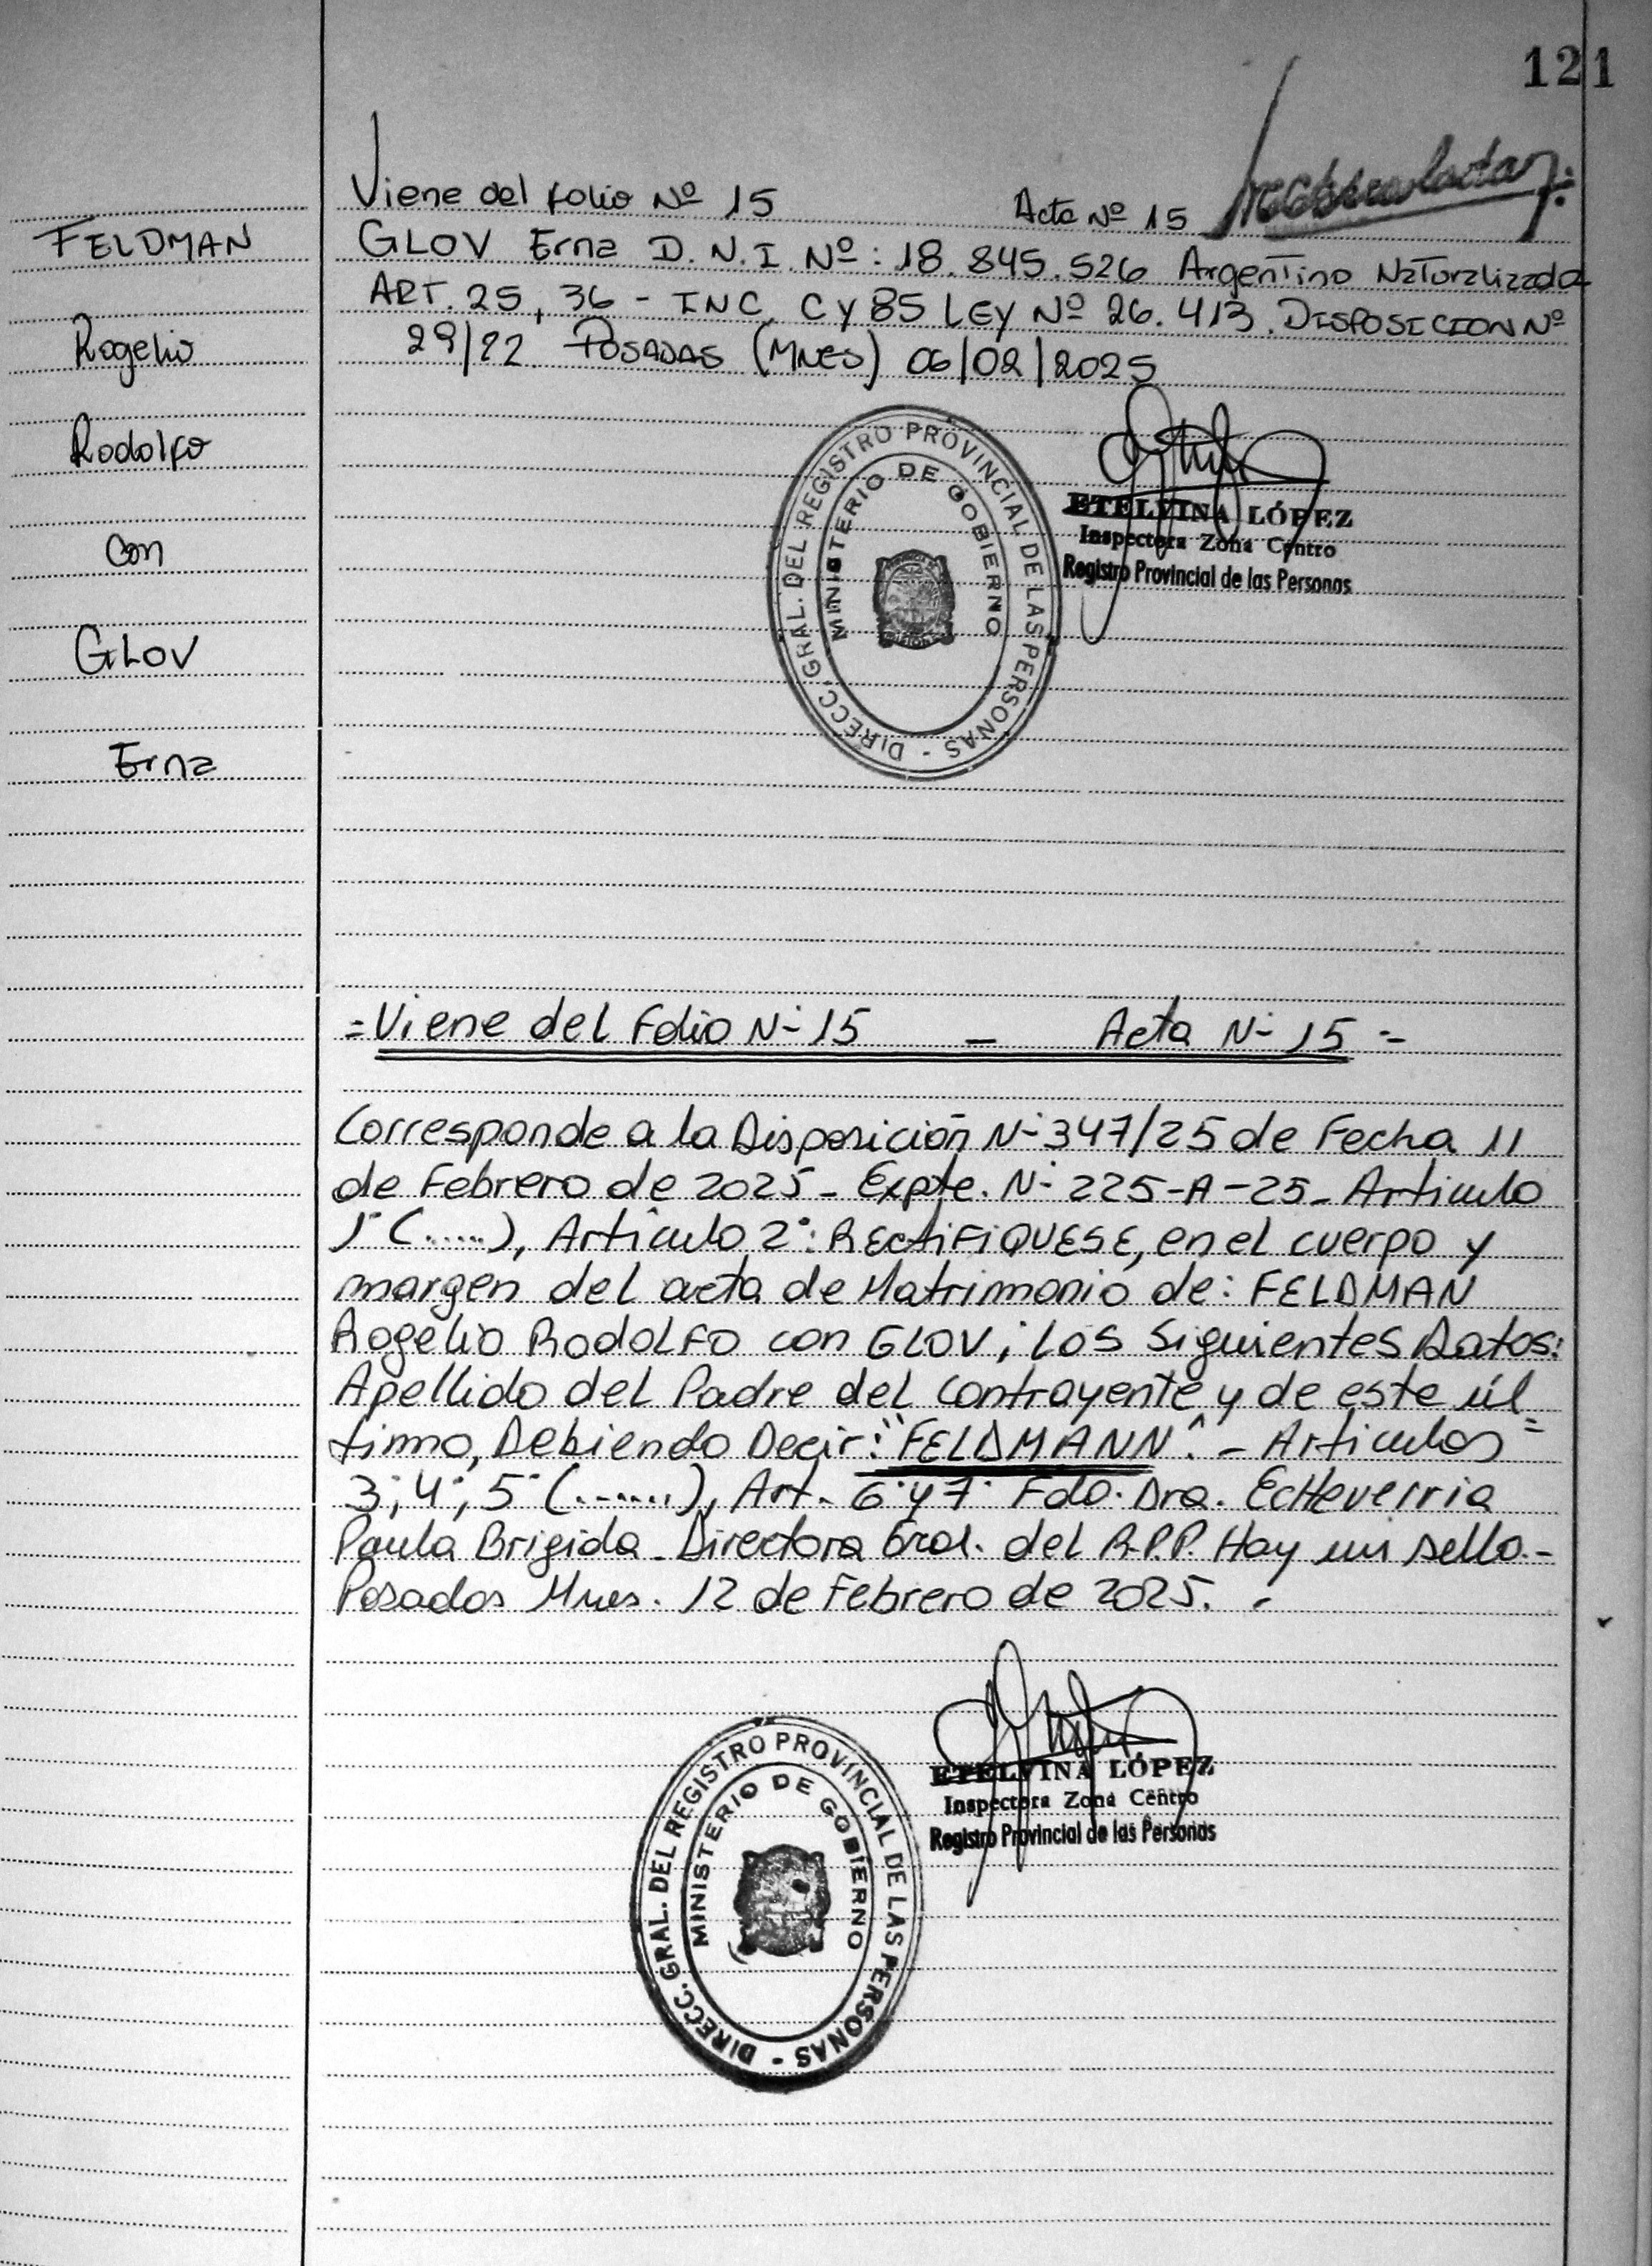 121
Viene del folio Nº 15 Acta Nº 15
FELDMAN
Rogelio
Rodolfo
con
GLOV
Erna
GLOV Erna D.N.I. Nº: 18.845.526 Argentino Naturalizada
ART. 25, 36 - INC, C Y 85 LEY Nº 26.413. DISPOSICION Nº
29/22 POSADAS (MNES) 06/02/2025
DIRECC. GRAL. DEL REGISTRO PROVINCIAL DE LAS PERSONAS -
MINISTERIO DE GOBIERNO
ETELVINA LÓPEZ
Inspectora Zona Centro
Registro Provincial de las Personas
=Viene del Folio N- 15 - Acta N- 15 =
Corresponde a la Disposición N- 347/25 de Fecha 11
de Febrero de 2025 - Expte. N- 225-A-25- Articulo
1° (.....), Articulo 2°: RECTIFIQUESE, en el cuerpo y
margen del acta de Matrimonio de: FELDMAN
Rogelio RODOLFO con GLOV, los siguientes Datos:
Apellido del Padre del contrayente y de este úl
timo, Debiendo Decir: "FELDMANN". - Articulos =
3°, 4°, 5° (......), Art. 6° y 7° Fdo. Dra. Echeverria
Paula Brigida - Directora Gral. del R.P.P. Hay un sello.-
Posadas Mnes. 12 de Febrero de 2025. -
DIRECC. GRAL. DEL REGISTRO PROVINCIAL DE LAS PERSONAS -
MINISTERIO DE GOBIERNO
ETELVINA LÓPEZ
Inspectora Zona Centro
Registro Provincial de las Personas